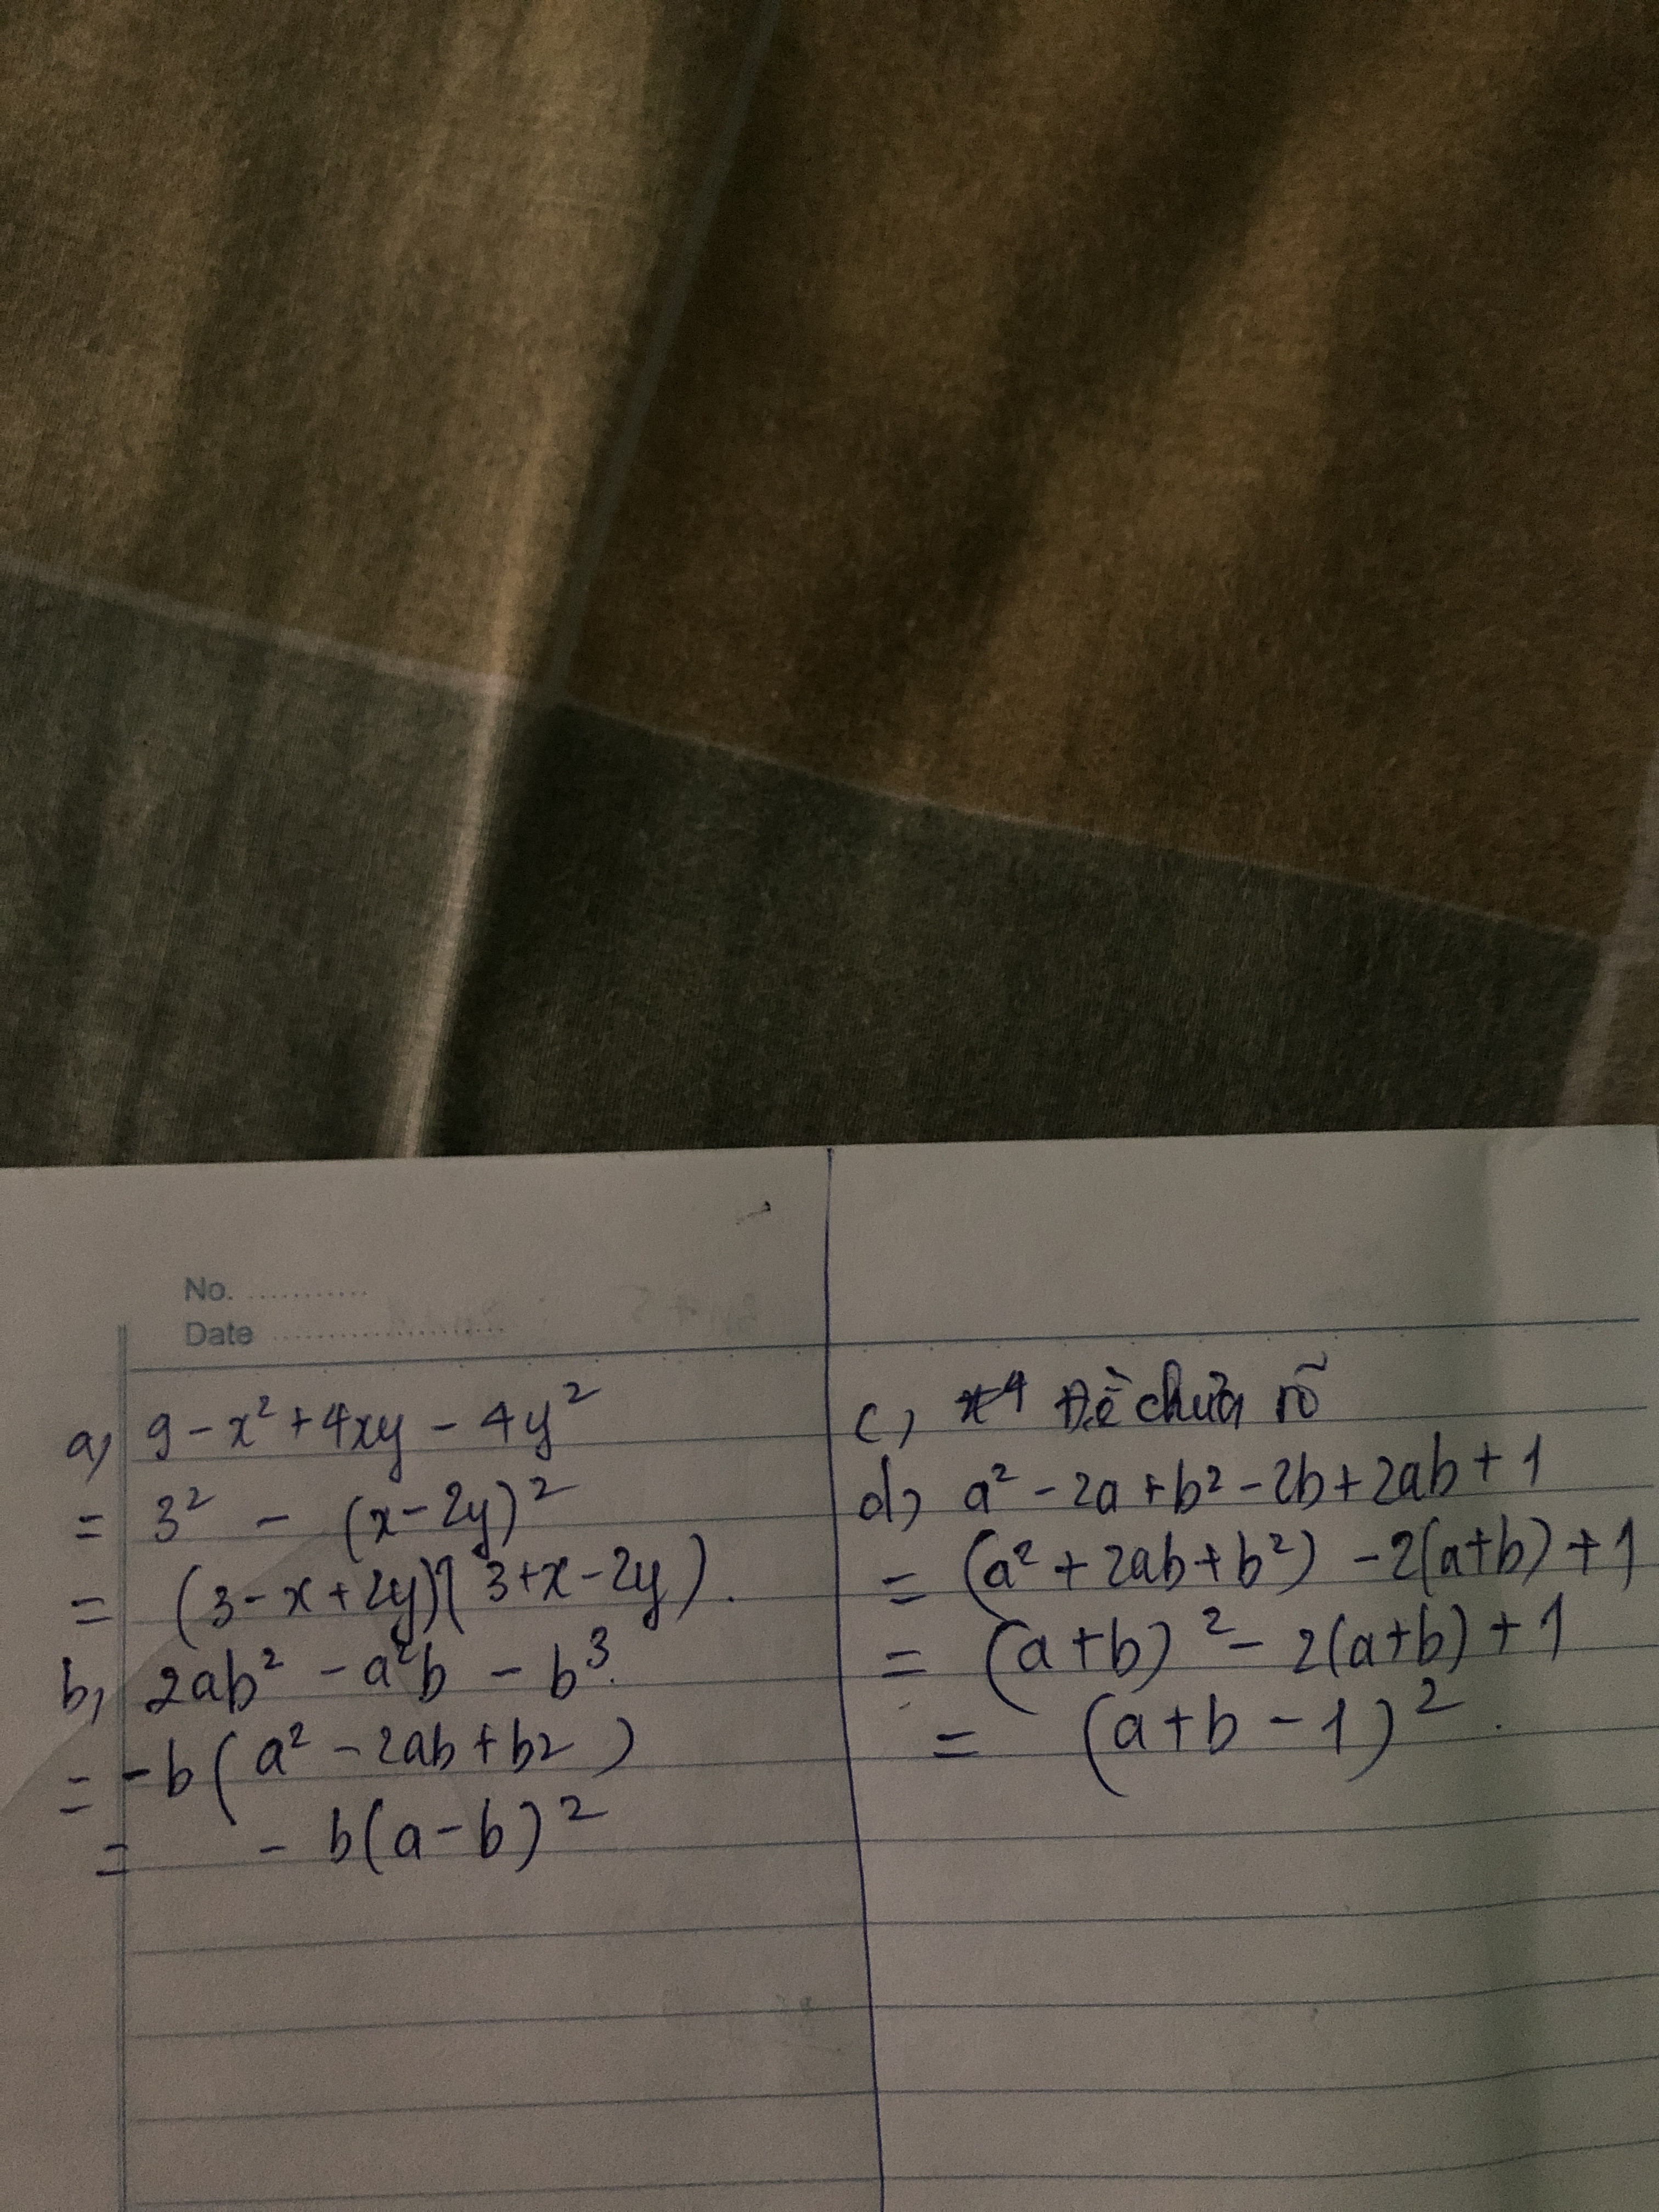 No. ...........
Date ......................
a) 9 - x² + 4xy - 4y²
= 3² - (x - 2y)²
= (3 - x + 2y)(3 + x - 2y).
b, 2ab² - a²b - b³.
= -b(a² - 2ab + b2)
= - b(a - b)²
c, x⁴ Đề chưa rõ
d, a² - 2a + b² - 2b + 2ab + 1
= (a² + 2ab + b²) - 2(a+b) + 1
= (a + b)² - 2(a+b) + 1
= (a + b - 1)².